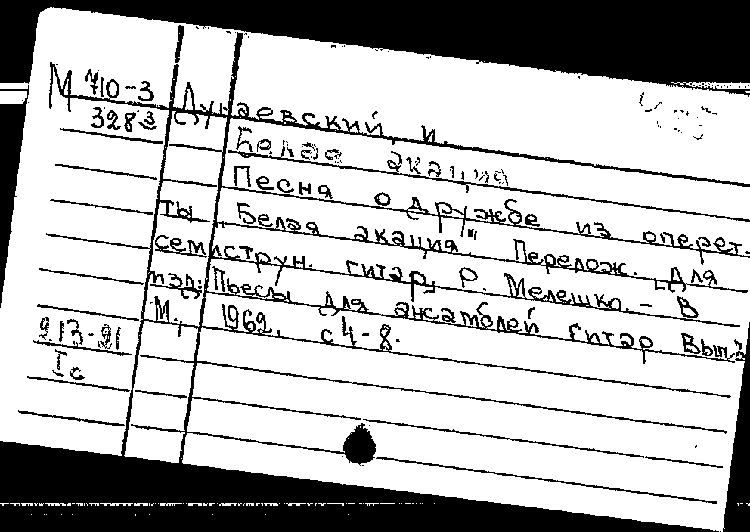 М 710-3
328 з
Дунаевский, И.
Белая акация
Песня о дружбе из оперет-
ты „Белая акация." Перелож. для
семиструн. гитар Р. Мелешко. - В
изд: Пьесы для ансамблей гитар Вып.3
М., 1969, с 4-8.
913-91
Iс